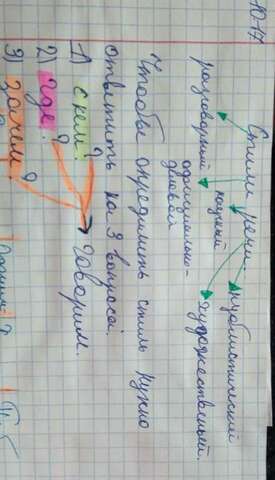 Стили речи.
разговорный
научный
публистический
официально-
деловой
художественный.
Чтобы определить стиль нужно
ответить на 3 вопроса.
1) с кем?
2) где?
говорим.
3) зачем?